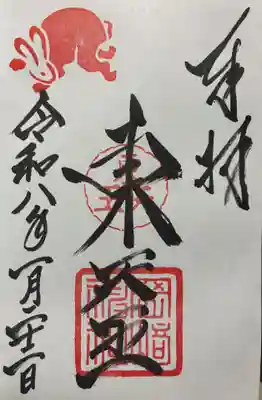 奉拝
東天王
令和八年一月二十一日